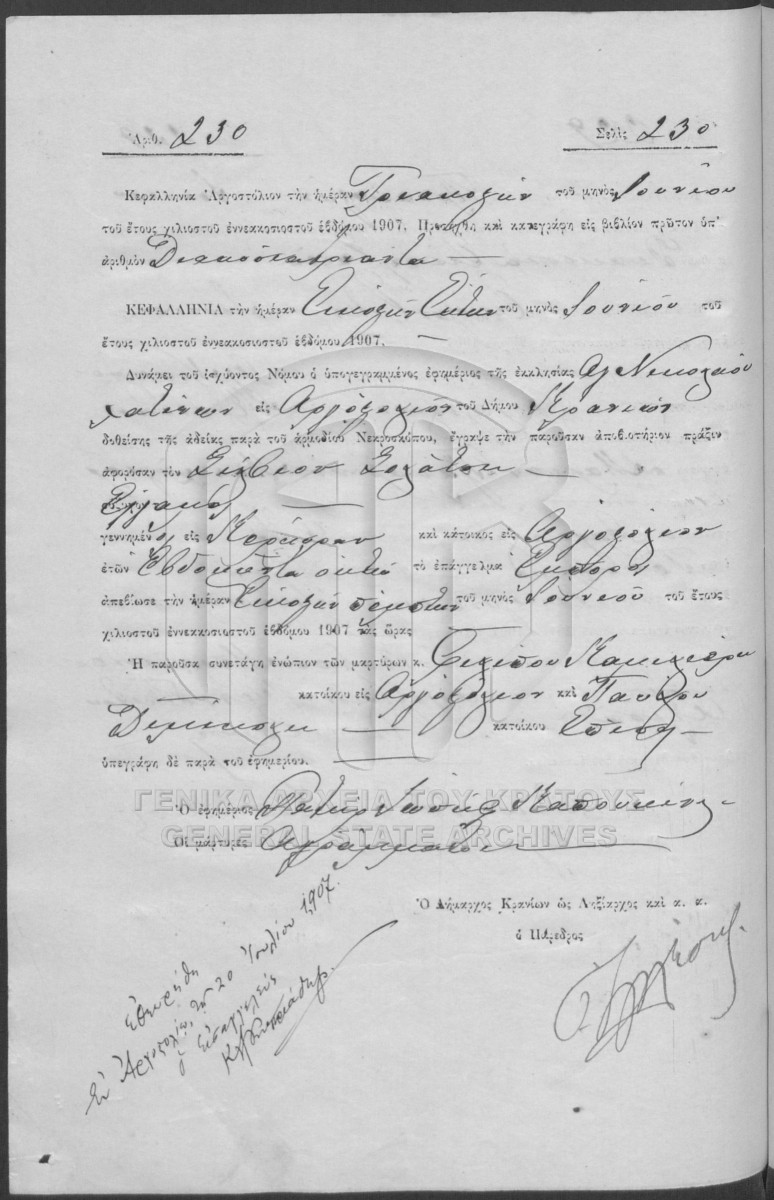 Ἀριθ. 230 Σελὶς 230
Κεφαλληνία Ἀργοστόλιον τὴν ἡμέραν Τριακοστὴν τοῦ μηνὸς Ἰουνίου
τοῦ ἔτους χιλιοστοῦ ἐννεακοσιοστοῦ ἑβδόμου 1907. Προσήχθη καὶ κατεγράφη εἰς βιβλίον πρῶτον ὑπ'
ἀριθμὸν Διακόσια τριάντα —
ΚΕΦΑΛΛΗΝΙΑ τὴν ἡμέραν Εἰκοστὴν Ἕκτην τοῦ μηνὸς Ἰουνίου τοῦ
ἔτους χιλιοστοῦ ἐννεακοσιοστοῦ ἑβδόμου 1907. —
Δυνάμει τοῦ ἰσχύοντος Νόμου ὁ ὑπογεγραμμένος ἐφημέριος τῆς ἐκκλησίας Ἁγ Νικολάου
Λατίνων εἰς Ἀργοστόλιον τοῦ Δήμου Κρανίων
δοθείσης τῆς ἀδείας παρὰ τοῦ ἁρμοδίου Νεκροσκόπου, ἔγραψε τὴν παροῦσαν ἀποβιωτήριον πράξιν
ἀφορῶσαν τὸν
γεννημένος εἰς Κέρκυραν καὶ κάτοικος εἰς Ἀργοστόλιον
ἐτῶν Ἑβδομῆντα ὀκτώ τὸ ἐπάγγελμα Ἔμπορος
ἀπεβίωσε τὴν ἡμέραν Εἰκοστὴν πέμπτην τοῦ μηνὸς Ἰουνίου τοῦ ἔτους
χιλιοστοῦ ἐννεακοσιοστοῦ ἑβδόμου 1907 τὰς ὥρας
Ἡ παροῦσα συνετάγη ἐνώπιον τῶν μαρτύρων κ. Φιλίπου
κατοίκου εἰς Ἀργοστόλιον καὶ Παύλου
κατοίκου Ἐπίσης —
ὑπεγράφη δὲ παρὰ τοῦ ἐφημερίου.
ΓΕΝΙΚΑ ΑΡΧΕΙΑ ΤΟΥ ΚΡΑΤΟΥΣ
Ὁ ἐφημέριος Πάτερ
GENERAL STATE ARCHIVES
Οἱ μάρτυρες Ἀγράμματοι
Ὁ Δήμαρχος Κρανίων ὡς Ληξίαρχος καὶ κ. κ.
ὁ Πάρεδρος
Ἐθεωρήθη
Ἐν Ἀργοστολίῳ τῇ 20 Ἰουλίου 1907.
ὁ Εἰσαγγελεὺς